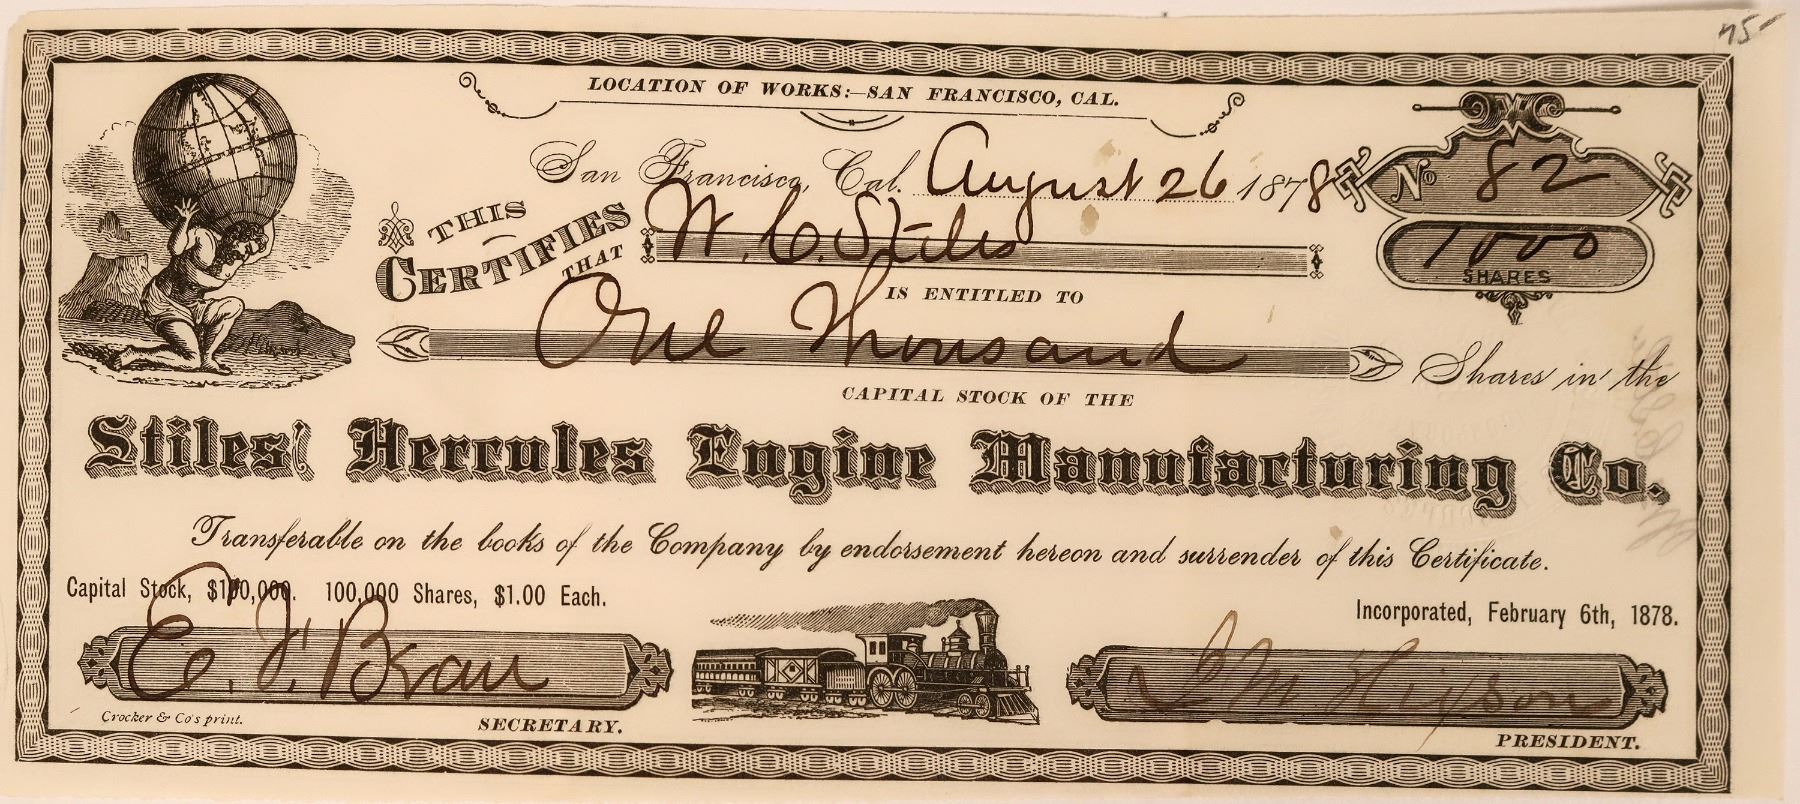 75
LOCATION OF WORKS:—SAN FRANCISCO, CAL.
San Francisco, Cal. August 26 1878
No 82
THIS CERTIFIES THAT W. C. Stiles
1000 SHARES
IS ENTITLED TO
One Thousand Shares in the
CAPITAL STOCK OF THE
Stiles' Hercules Engine Manufacturing Co.
Transferable on the books of the Company by endorsement hereon and surrender of this Certificate.
Capital Stock, $100,000. 100,000 Shares, $1.00 Each.
Incorporated, February 6th, 1878.
Crocker & Co's print.
SECRETARY.
PRESIDENT.